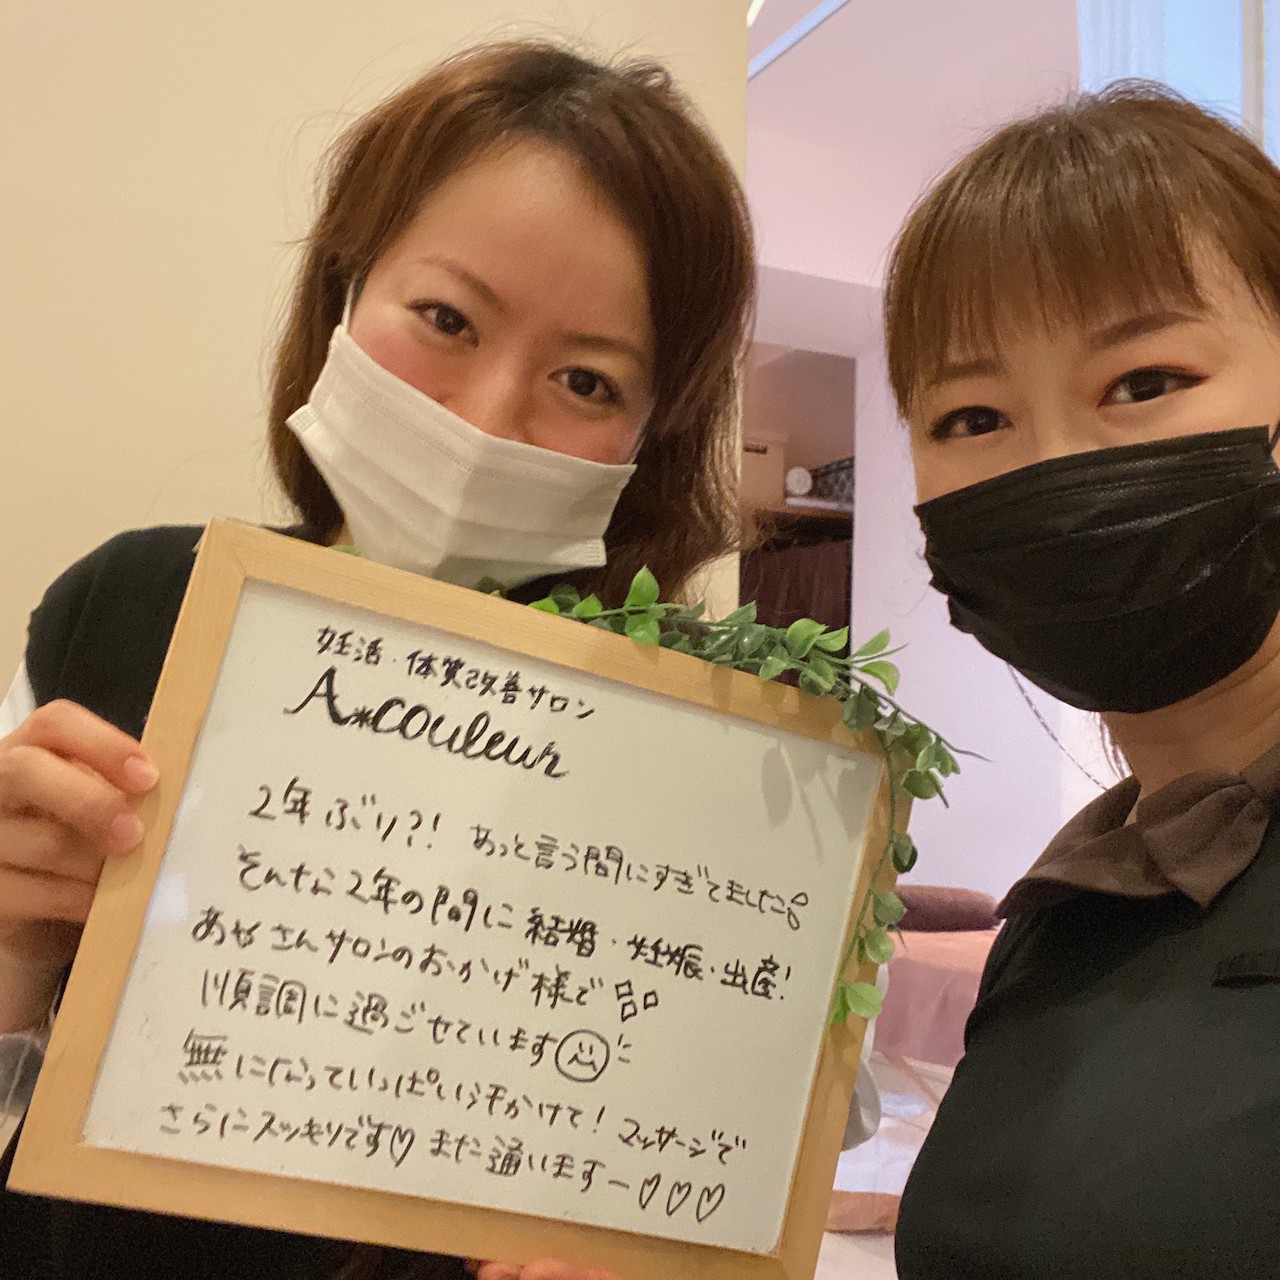 妊活・体質改善サロン
A*couleur
2年ぶり?! あっと言う間にすぎてました
そんな2年の間に結婚・妊娠・出産!
あやさんサロンのおかげ様で
順調に過ごせています
無になっていっぱい汗かけて! マッサージで
さらにスッキリです♡ また通いますー♡♡♡